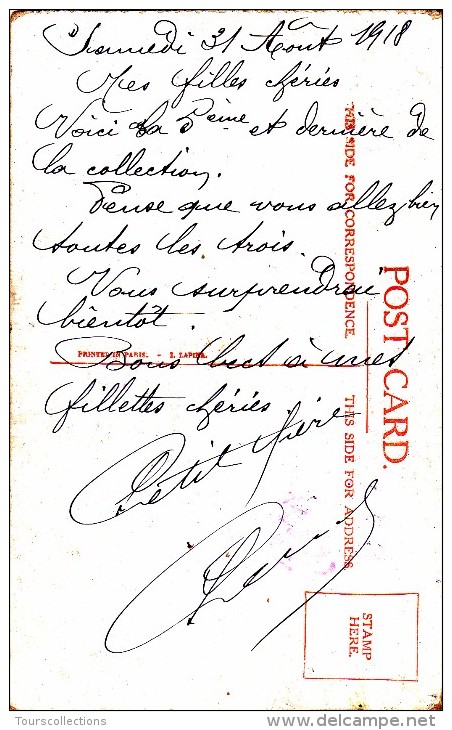 Samedi 31 Août 1918
Mes filles chéries
Voici la 5ème et dernière de
la collection.
Pense que vous allez bien
toutes les trois.
Vous surprendrai
bientôt.
Bons à mes
fillettes chéries
Petit Père
THIS SIDE FOR CORRESPONDENCE.
POST CARD.
THIS SIDE FOR ADDRESS
PRINTED IN PARIS. - I. LAPINA.
STAMP
HERE.
Tourscollections
www.delcampe.net